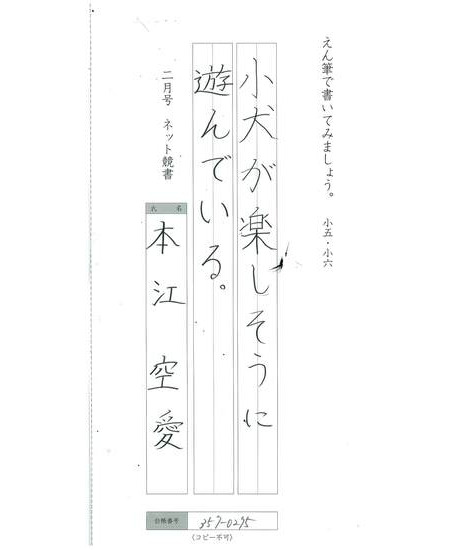 えん筆で書いてみましょう。 小五・小六
小犬が楽しそうに
遊んでいる。
二月号 ネット競書
氏名
本江 空愛
会務番号 357-0295
(コピー不可)